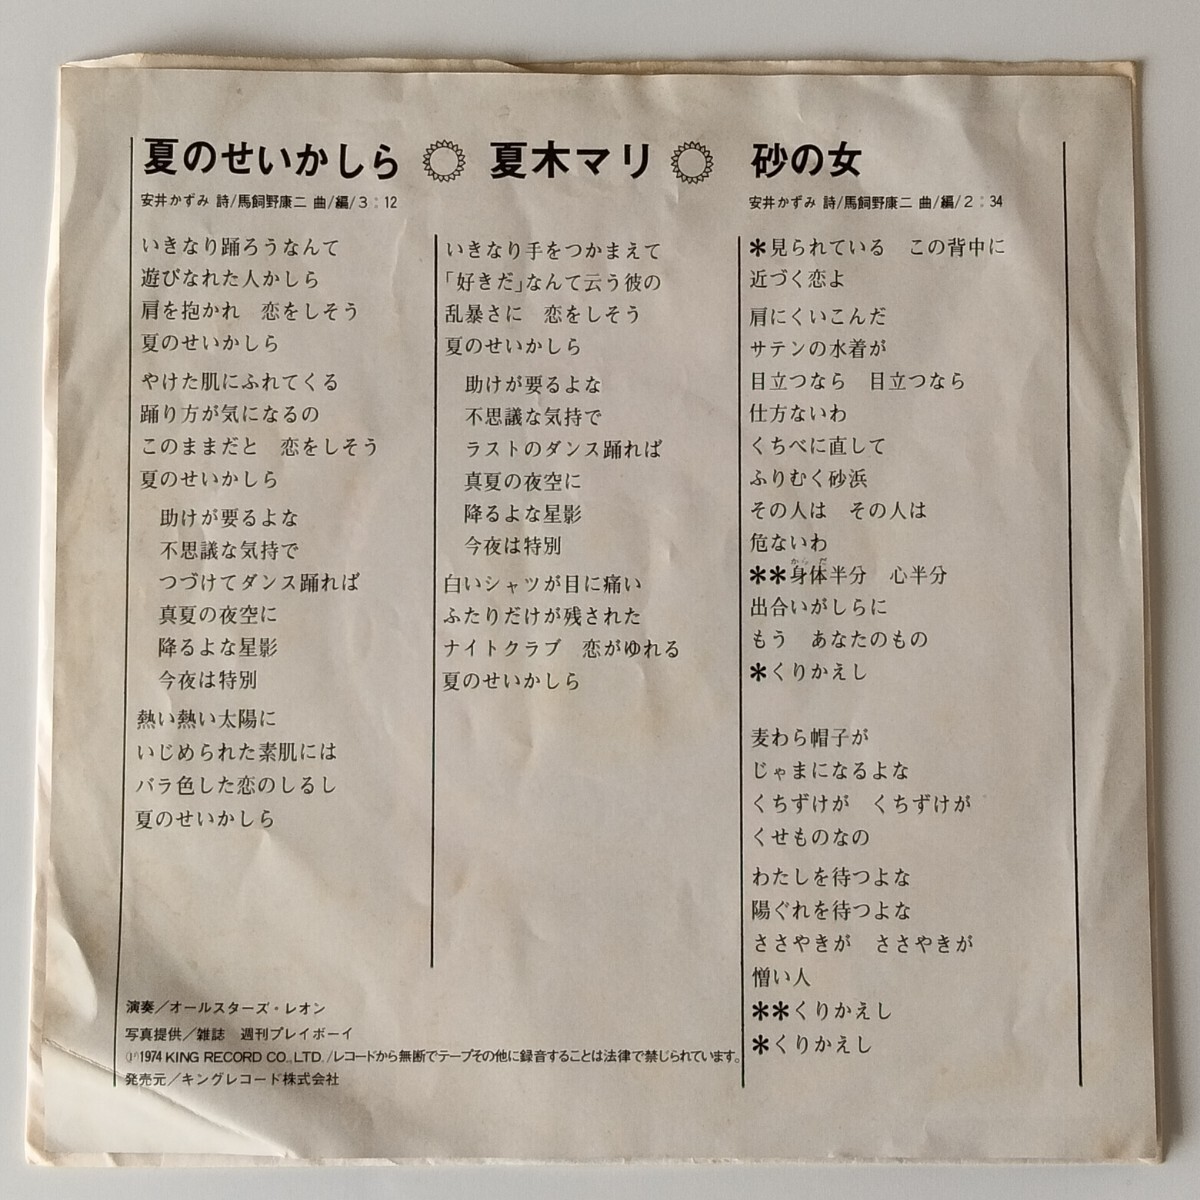 夏のせいかしら
夏木マリ
砂の女
安井かずみ 詩/馬飼野康二 曲/編/3:12
いきなり踊ろうなんて
遊びなれた人かしら
肩を抱かれ　恋をしそう
夏のせいかしら
やけた肌にふれてくる
踊り方が気になるの
このままだと　恋をしそう
夏のせいかしら
助けが要るよな
不思議な気持で
つづけてダンス踊れば
真夏の夜空に
降るよな星影
今夜は特別
熱い熱い太陽に
いじめられた素肌には
バラ色した恋のしるし
夏のせいかしら
いきなり手をつかまえて
「好きだ」なんて云う彼の
乱暴さに　恋をしそう
夏のせいかしら
助けが要るよな
不思議な気持で
ラストのダンス踊れば
真夏の夜空に
降るよな星影
今夜は特別
白いシャツが目に痛い
ふたりだけが残された
ナイトクラブ　恋がゆれる
夏のせいかしら
安井かずみ 詩/馬飼野康二 曲/編/2:34
＊見られている　この背中に
近づく恋よ
肩にくいこんだ
サテンの水着が
目立つなら　目立つなら
仕方ないわ
くちべに直して
ふりむく砂浜
その人は　その人は
危ないわ
からだ
＊＊身体半分　心半分
出合いがしらに
もう　あなたのもの
＊くりかえし
麦わら帽子が
じゃまになるよな
くちずけが　くちずけが
くせものなの
わたしを待つよな
陽ぐれを待つよな
ささやきが　ささやきが
憎い人
＊＊くりかえし
＊くりかえし
演奏／オールスターズ・レオン
写真提供／雑誌　週刊プレイボーイ
Ⓟ1974 KING RECORD CO.,LTD./レコードから無断でテープその他に録音することは法律で禁じられています。
発売元／キングレコード株式会社